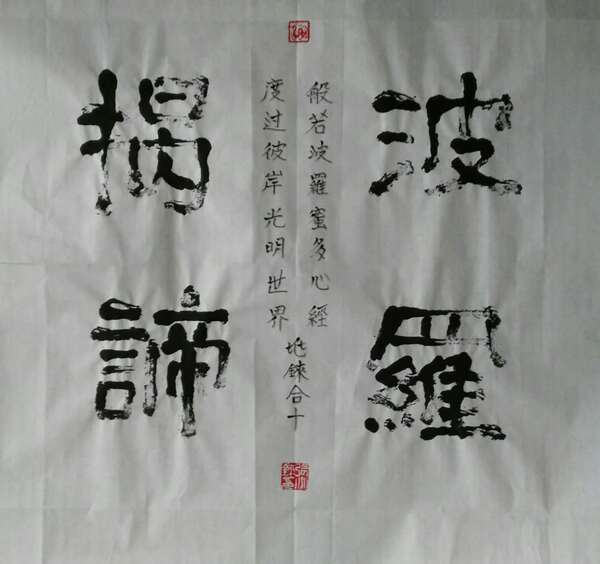 波羅
揭諦
般若波羅蜜多心經
度过彼岸光明世界
合十